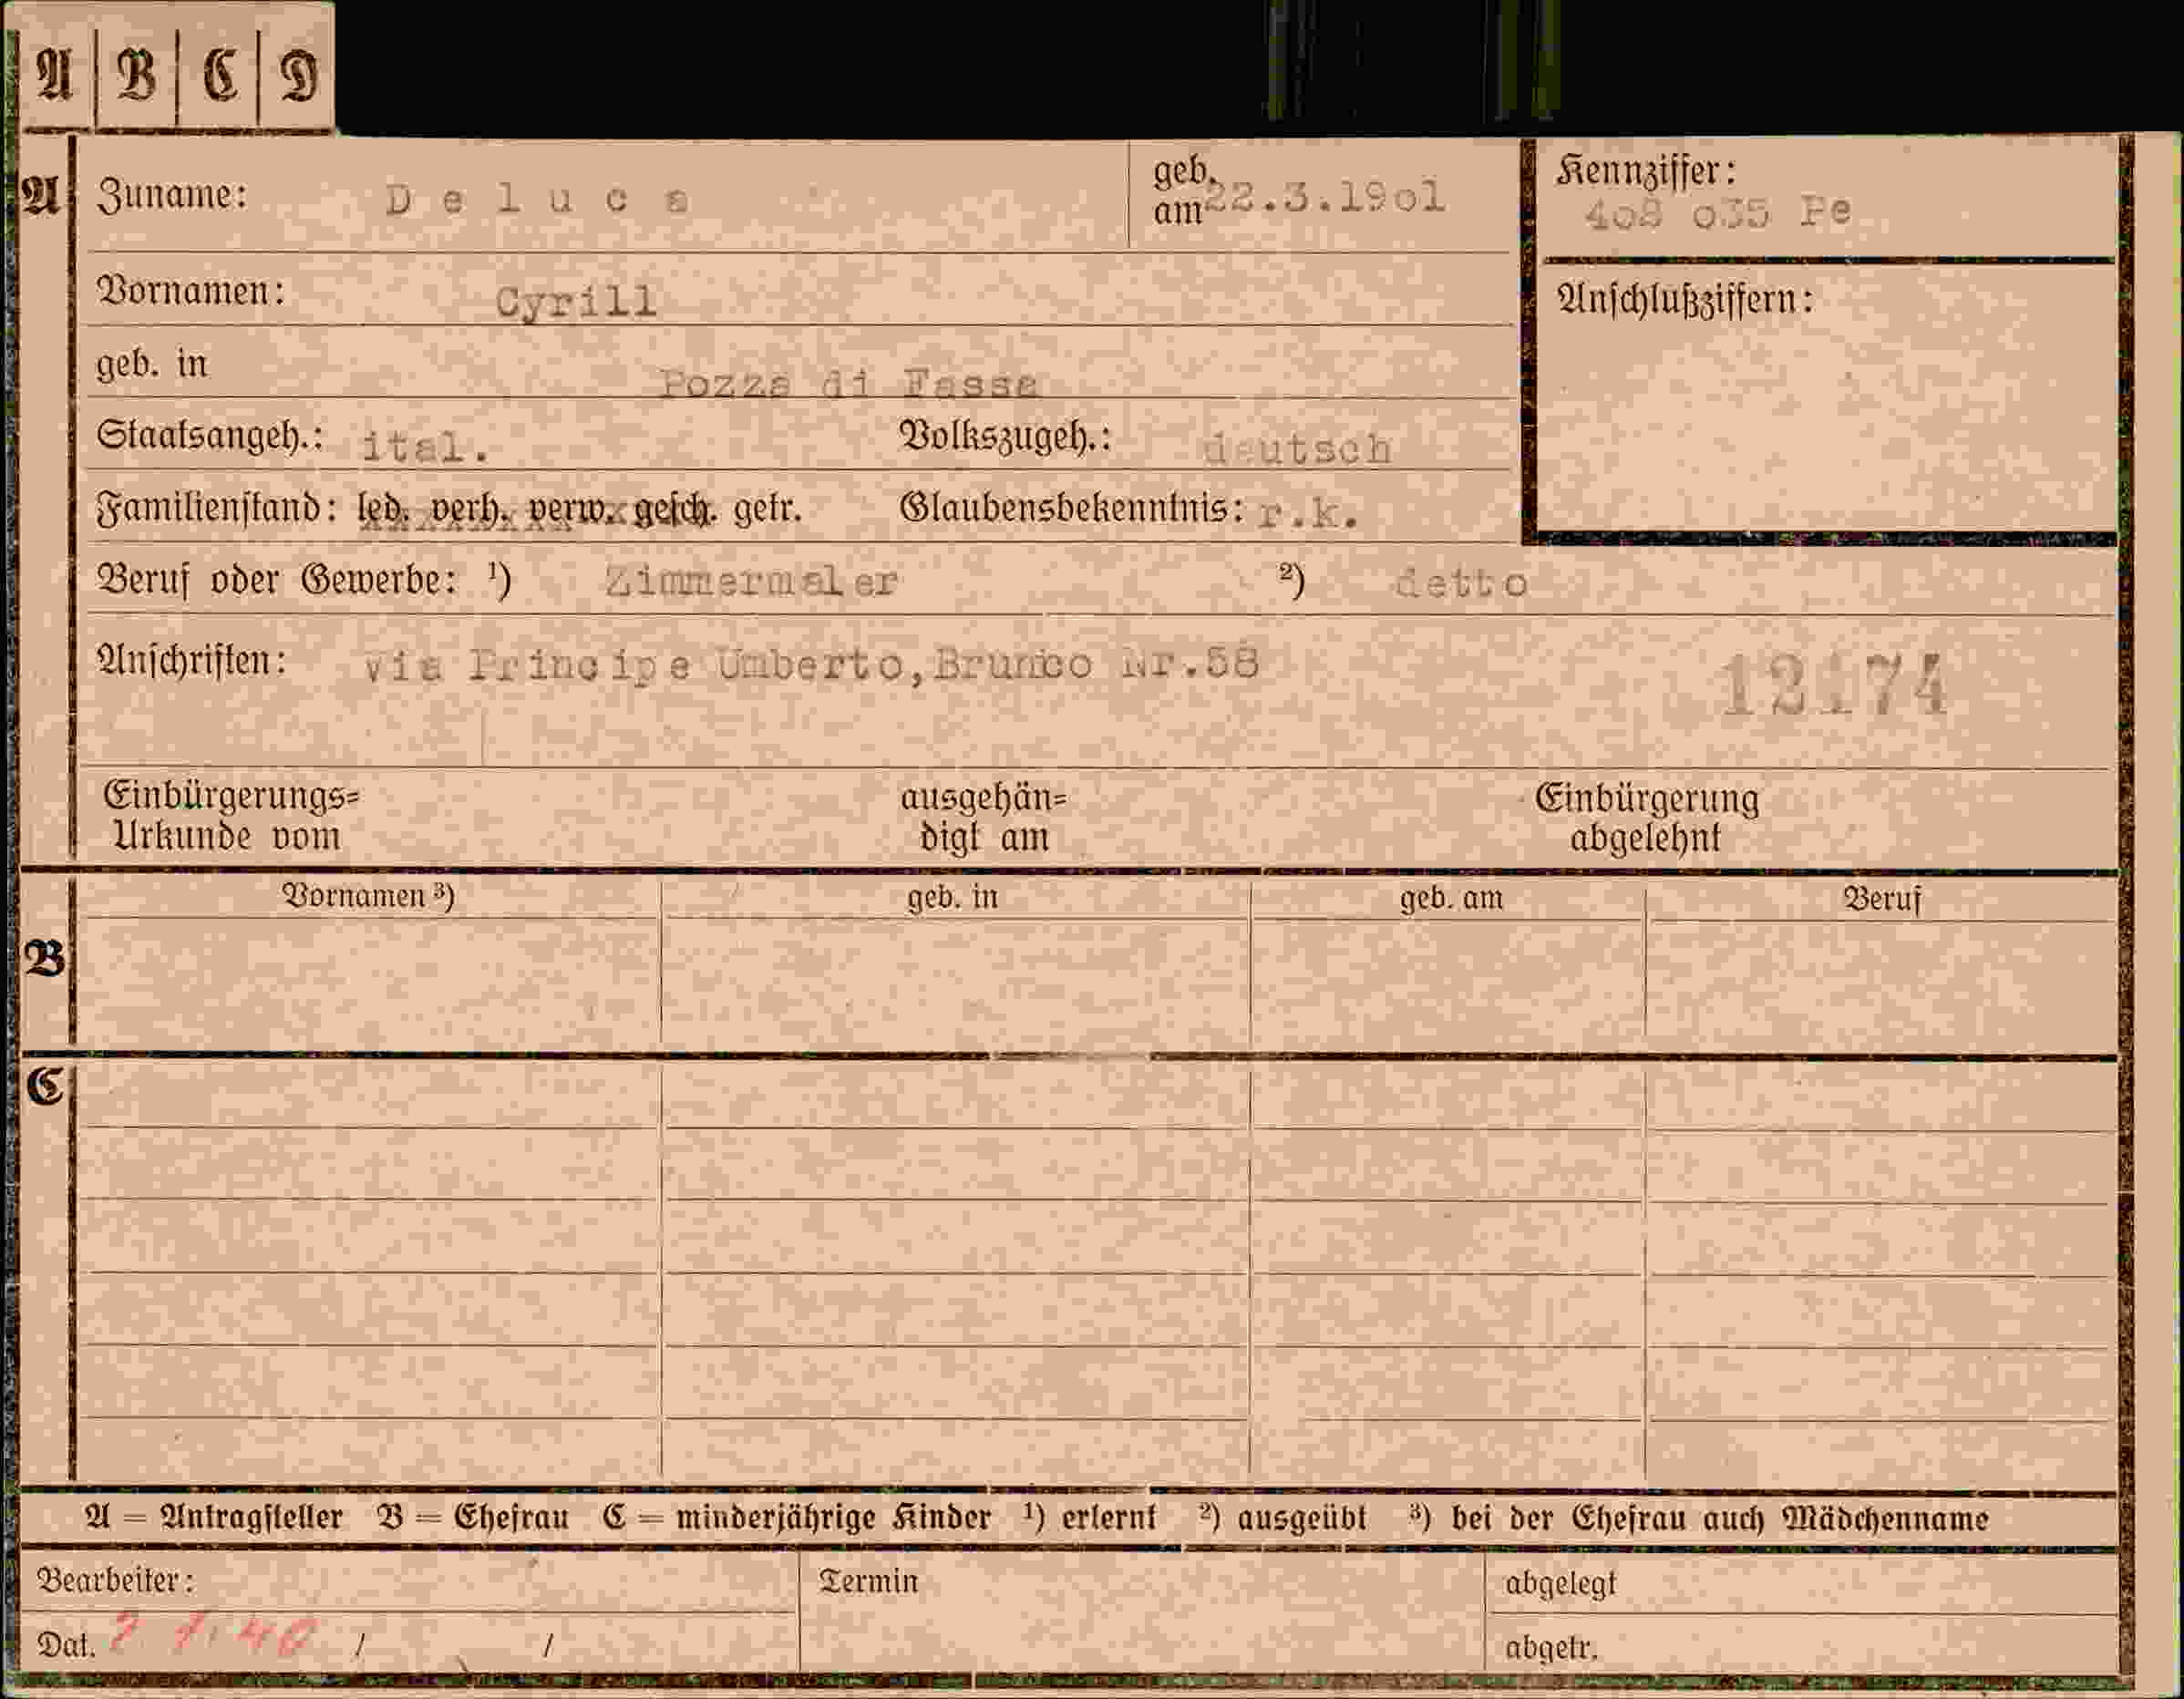 A B C D
A Zuname: Deluca geb. am 22.3.19o1 Kennziffer: 4o8 o35 Pe
Vornamen: Cyrill Anschlußziffern:
geb. in Pozza di Fassa
Staatsangeh.: ital. Volkszugeh.: deutsch
Familienstand: led. verh. verw. gesch. getr. Glaubensbekenntnis: r.k.
Beruf oder Gewerbe: ¹) Zimmermaler ²) detto
Anschriften: via Principe Umberto,Brunico Nr.58 12174
Einbürgerungs= ausgehän= Einbürgerung
Urkunde vom digt am abgelehnt
Vornamen ³) geb. in geb. am Beruf
B
C
A = Antragsteller B = Ehefrau C = minderjährige Kinder ¹) erlernt ²) ausgeübt ³) bei der Ehefrau auch Mädchenname
Bearbeiter: Termin abgelegt
Dat. / / abgetr.